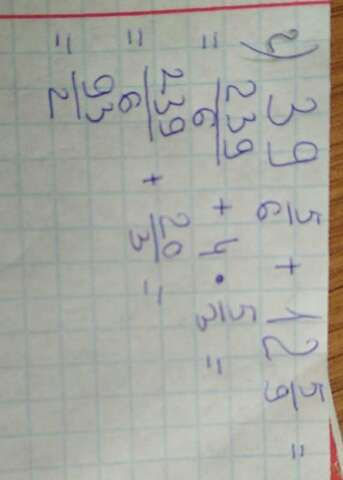 г) 39 5/6 + 12 5/9 =
= 239/6 + 4 · 5/3 =
= 239/6 + 20/3 =
= 93/2